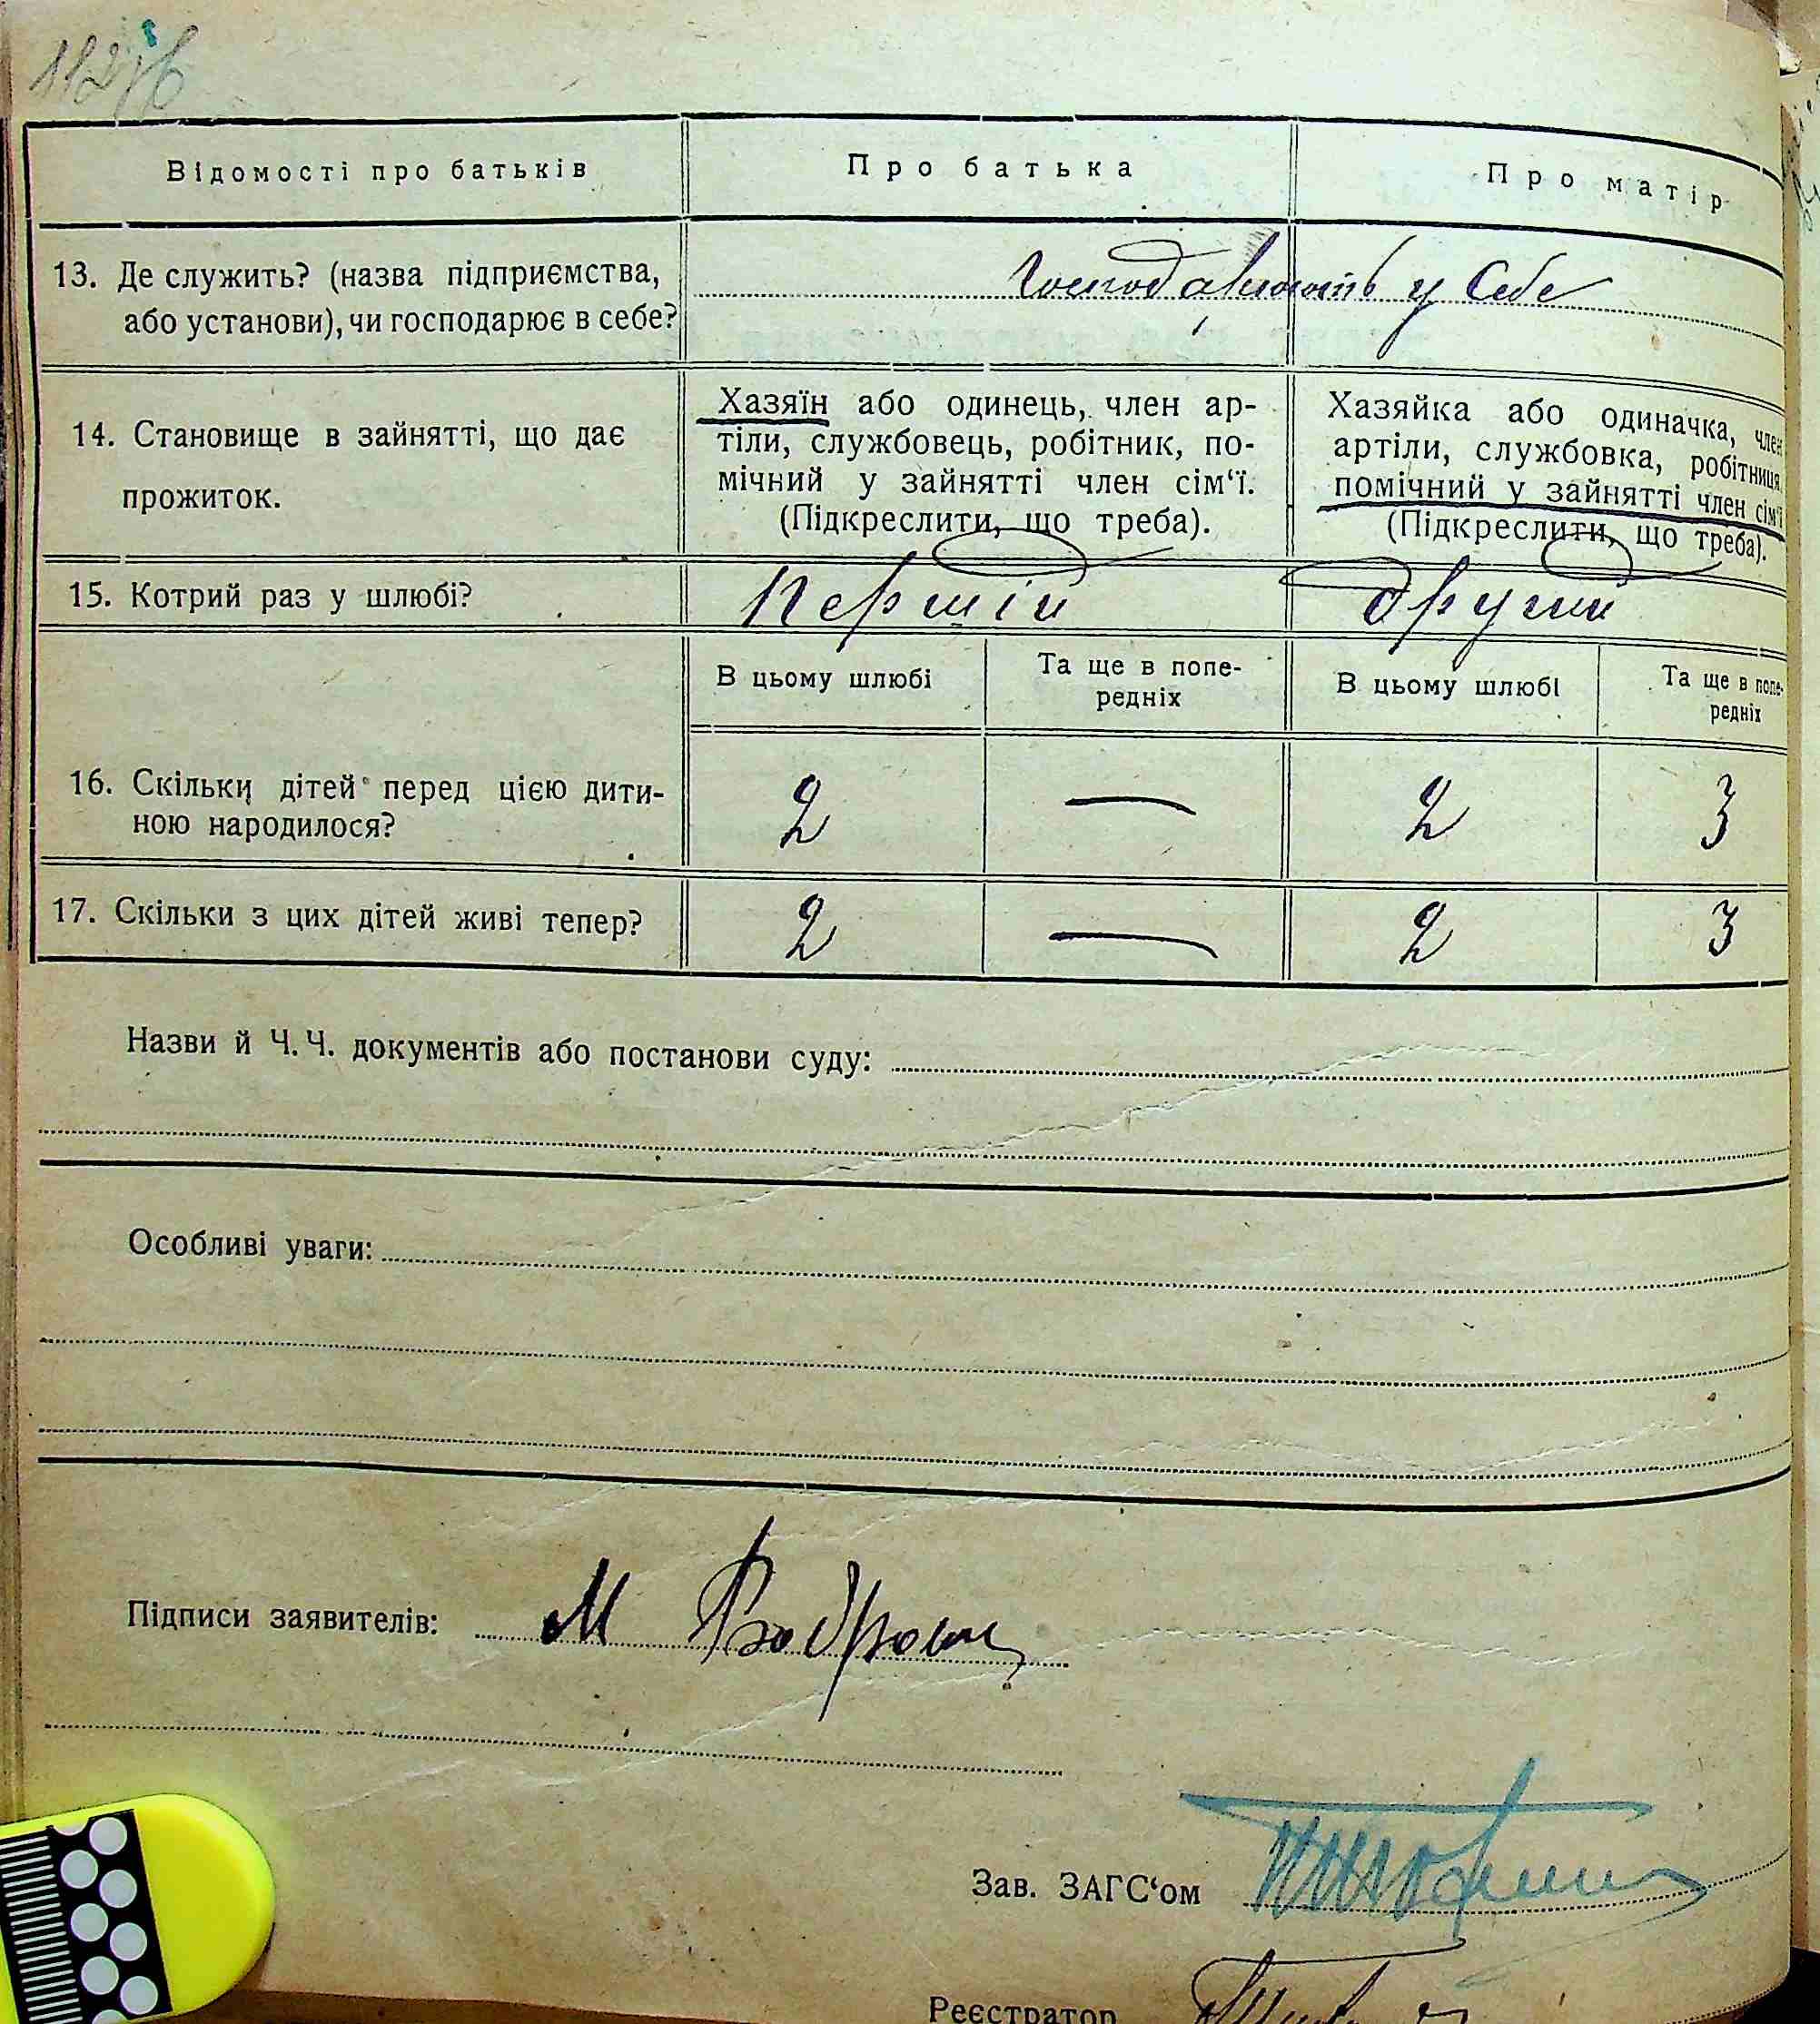 Відомості про батьків Про батька Про матір
13. Де служить? (назва підприємства, або установи), чи господарює в себе?
Господарюють у Себе
14. Становище в зайнятті, що дає прожиток.
Хазяїн або одинець, член ар-
тіли, службовець, робітник, по-
мічний у зайнятті член сім‘ї.
(Підкреслити, що треба).
Хазяйка або одиначка, член
артіли, службовка, робітниця,
помічний у зайнятті член сім‘ї
(Підкреслити, що треба).
15. Котрий раз у шлюбі? Першій другий
В цьому шлюбі
Та ще в попе-
редніх
В цьому шлюбі
Та ще в попе-
редніх
16. Скільки дітей перед цією дити-
ною народилося? 2 — 2 3
17. Скільки з цих дітей живі тепер? 2 — 2 3
Назви й Ч. Ч. документів або постанови суду:
Особливі уваги:
Підписи заявителів: М
Зав. ЗАГС‘ом
Реєстратор